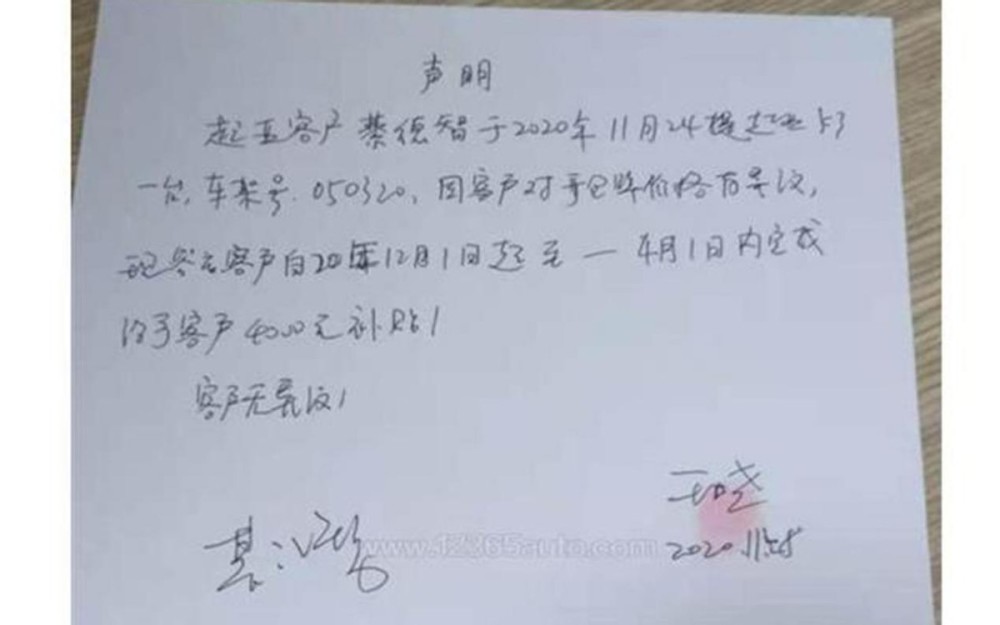 声明
起亚客户蔡德智于2020年11月24提起亚K3
一台,车架号.050320,因客户对价格有异议,
客户自20年12月1日起至一4月1日内完成
给予客户4000元补贴!
客户无异议!
www.12365auto.com
2020.11.